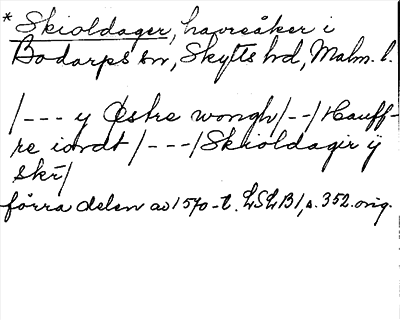 * Skioldager, havreåker i
Bodarps sn, Skytts hd, Malm. l.
/--- y Østre wongh/--/Hauff-
re iordt /---/Skioldagir ÿ
skr̄/
förra delen av 1570-t. LSLB1, s. 352. orig.